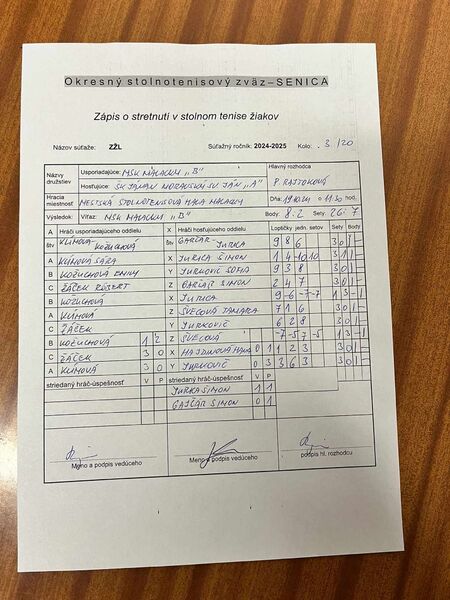 Okresný stolnotenisový zväz–SENICA
Zápis o stretnutí v stolnom tenise žiakov
Názov súťaže: ZŽL Súťažný ročník: 2024-2025 Kolo: 3/20
Názvy družstiev Usporiadajúce: MSK MALACKY „B" Hlavný rozhodca
Hosťujúce: SK JAMAN MORAVSKÝ SV. JÁN „A" P. RAJTOKOVÁ
Hracia miestnosť MESTSKÁ STOLNOTENISOVÁ HALA MALACKY Dňa: o 11:30 hod.
Výsledok: Víťaz: MSK MALACKY „B" Body: 8:2 Sety: 26:7
A Hráči usporiadajúceho oddielu X Hráči hosťujúceho oddielu Loptičky jedn. setov Sety Body
štv KLIMOVÁ KOŽUCHOVÁ štv JURKA 9 8 6 3 0 1 –
A KLIMOVÁ SÁRA X JURKA SIMON 1 4 -10 10 3 1 1 –
B KOŽUCHOVÁ EMILY Y JURKOVIČ SOFIA 9 3 8 3 0 1 –
C ŽÁČEK RÓBERT Z SIMON 2 4 7 3 0 1 –
B KOŽUCHOVÁ X JURKA 9 -6 -7 -7 1 3 – 1
A KLIMOVÁ Z ŠVECOVÁ TAMARA 7 1 6 3 0 1 –
C ŽÁČEK Y JURKOVIČ 6 2 8 3 0 1 –
B KOŽUCHOVÁ 1 2 Z ŠVECOVÁ -7 5 -7 -5 1 3 – 1
C ŽÁČEK 3 0 X 0 1 1 2 3 3 0 1 –
A KLIMOVÁ 3 0 Y JURKOVIČ 0 3 3 6 3 3 0 1 –
striedaný hráč-úspešnosť V P striedaný hráč-úspešnosť V P
JURKA SIMON 1 1
SIMON 0 1
Meno a podpis vedúceho Meno a podpis vedúceho podpis hl. rozhodcu